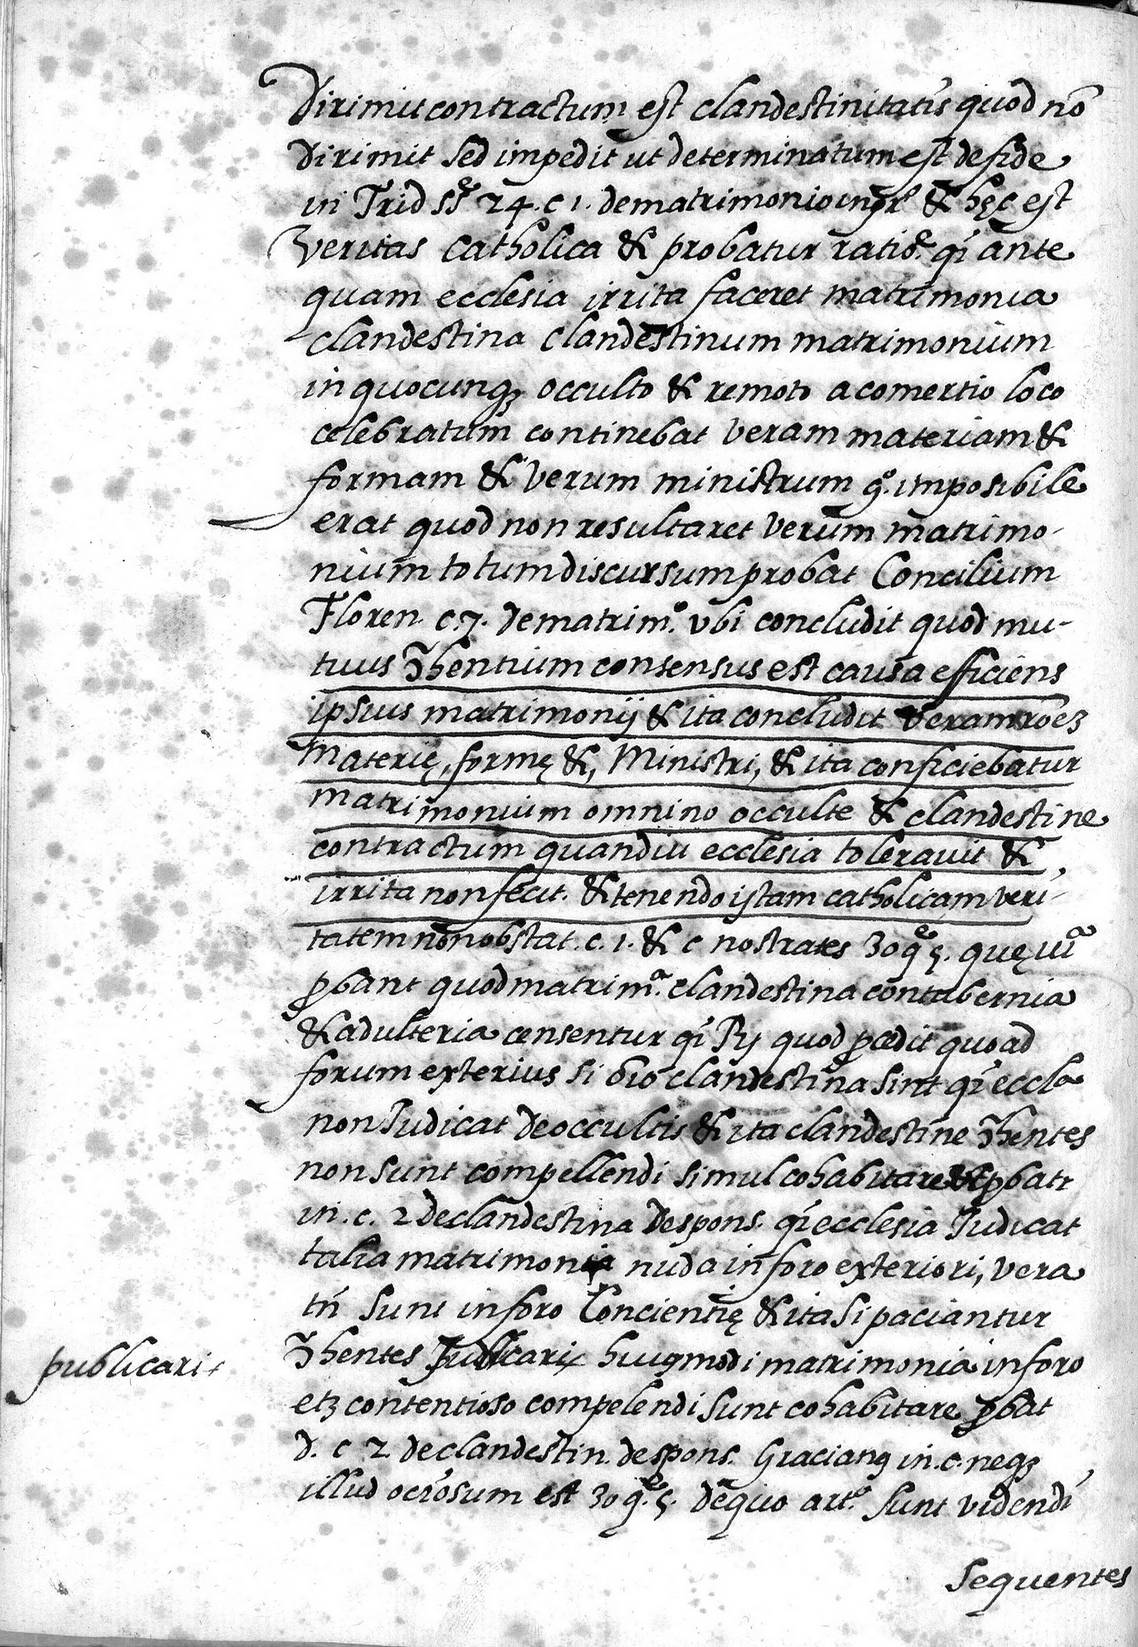 Dirimit contractum est clandestinitatis quod nō
dirimit sed impedit ut determinatum est de fide
in Trid ss.ᵉ 24. c 1. de matrimonio in gr̄ & hęc est
veritas catholica & probatur ratioᵉ. qī ante
quam ecclesia irrita faceret matrimonia
clandestina clandestinum matrimonium
in quocunqȝ occulto & remoto a comertio loco
celebratum continebat veram materiam &
formam & verum ministrum gº. imposibile
erat quod non resultaret verum matrimo-
nium totum discursum probat Concilium
Floren. c. 7. de matrimº. vbi concludit quod mu-
tuus 3hentium consensus est causa efficiens
ipsius matrimonij & ita concludit veram rōēȝ
Materię, formę &, Ministri, & ita conficiebatur
matrimonium omnino occulte & clandestine
contractum quandiu ecclesia tolerauit &
irrita non fecit. & tenendo istam catholicam veri-
tatem non obstat. c. 1. & c nostrates 30 qᵉ 5. quę
ꝓbant quod matrimª. clandestina contubernia
& adulteria censentur qī Rij quod ꝓcedit quoad
forum exterius si oīō clandestina sint qī eccla
non Iudicat de occultis & ita clandestine 3hentes
non sunt compellendi simul cohabitare & ꝓbatr
in. c. 2 de clandestina despons. qī ecclesia Iudicat
talia matrimonia nuda in foro exteriori, vera
tn̄ sunt in foro Concientię & ita si paciantur
publicari 3hentes huiqmodi matrimonia in foro
etȝ contentioso compelendi sunt cohabitare ꝓbat
d. c 2. de clandestin. despons. Gracianq in. c. neqȝ
illud ociosum est 30 qᵉ. 5. de quo artº. sunt videndi
sequentes